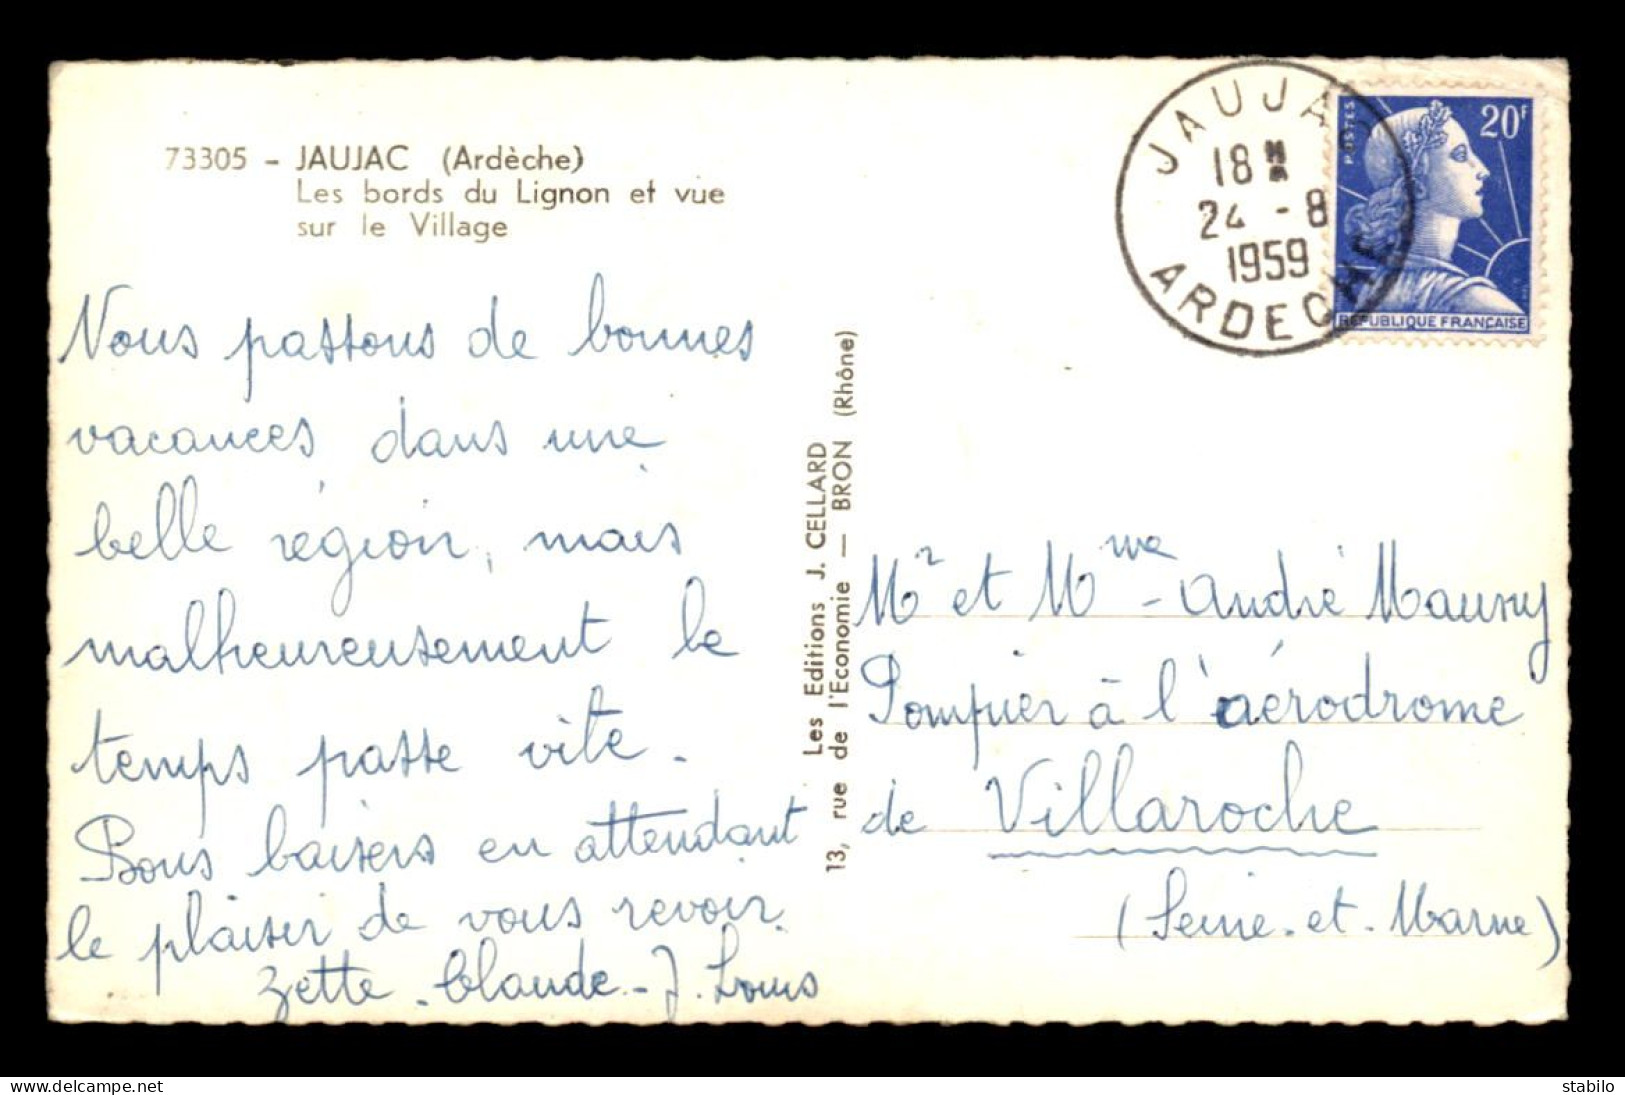 73305 - JAUJAC (Ardèche)
Les bords du Lignon et vue
sur le Village
Nous passons de bonnes
vacances dans une
belle région, mais
malheureusement le
temps passe vite.
Bons baisers en attendant
le plaisir de vous revoir.
Zette - Claude - J. Louis
Les Editions J. CELLARD
13, rue de l'Economie — BRON (Rhône)
JAUJAC
18 H
24 - 8
1959
ARDECHE
POSTES
20F
REPUBLIQUE FRANÇAISE
Mr et Mme - André Maury
Pompier à l'aérodrome
de Villaroche
(Seine-et-Marne)
delcampe.net
stabilo